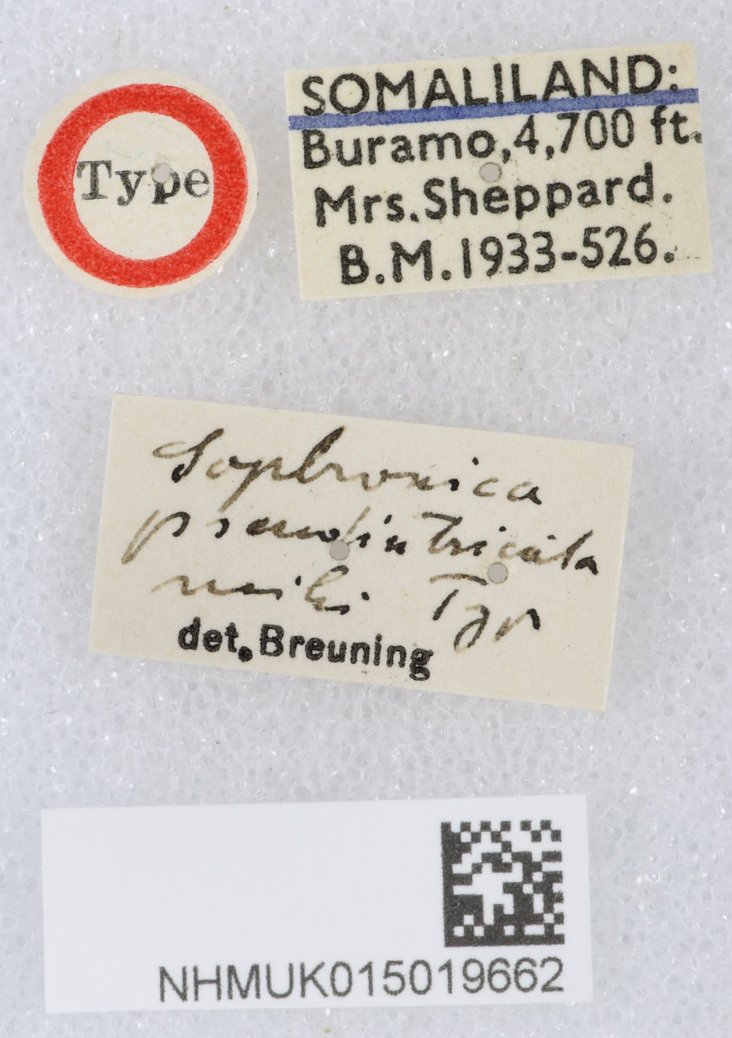 Type
SOMALILAND:
Buramo, 4,700 ft.
Mrs. Sheppard.
B.M. 1933-526.
Sophronica
pseudintricata
mihi Typ
det. Breuning
NHMUK015019662